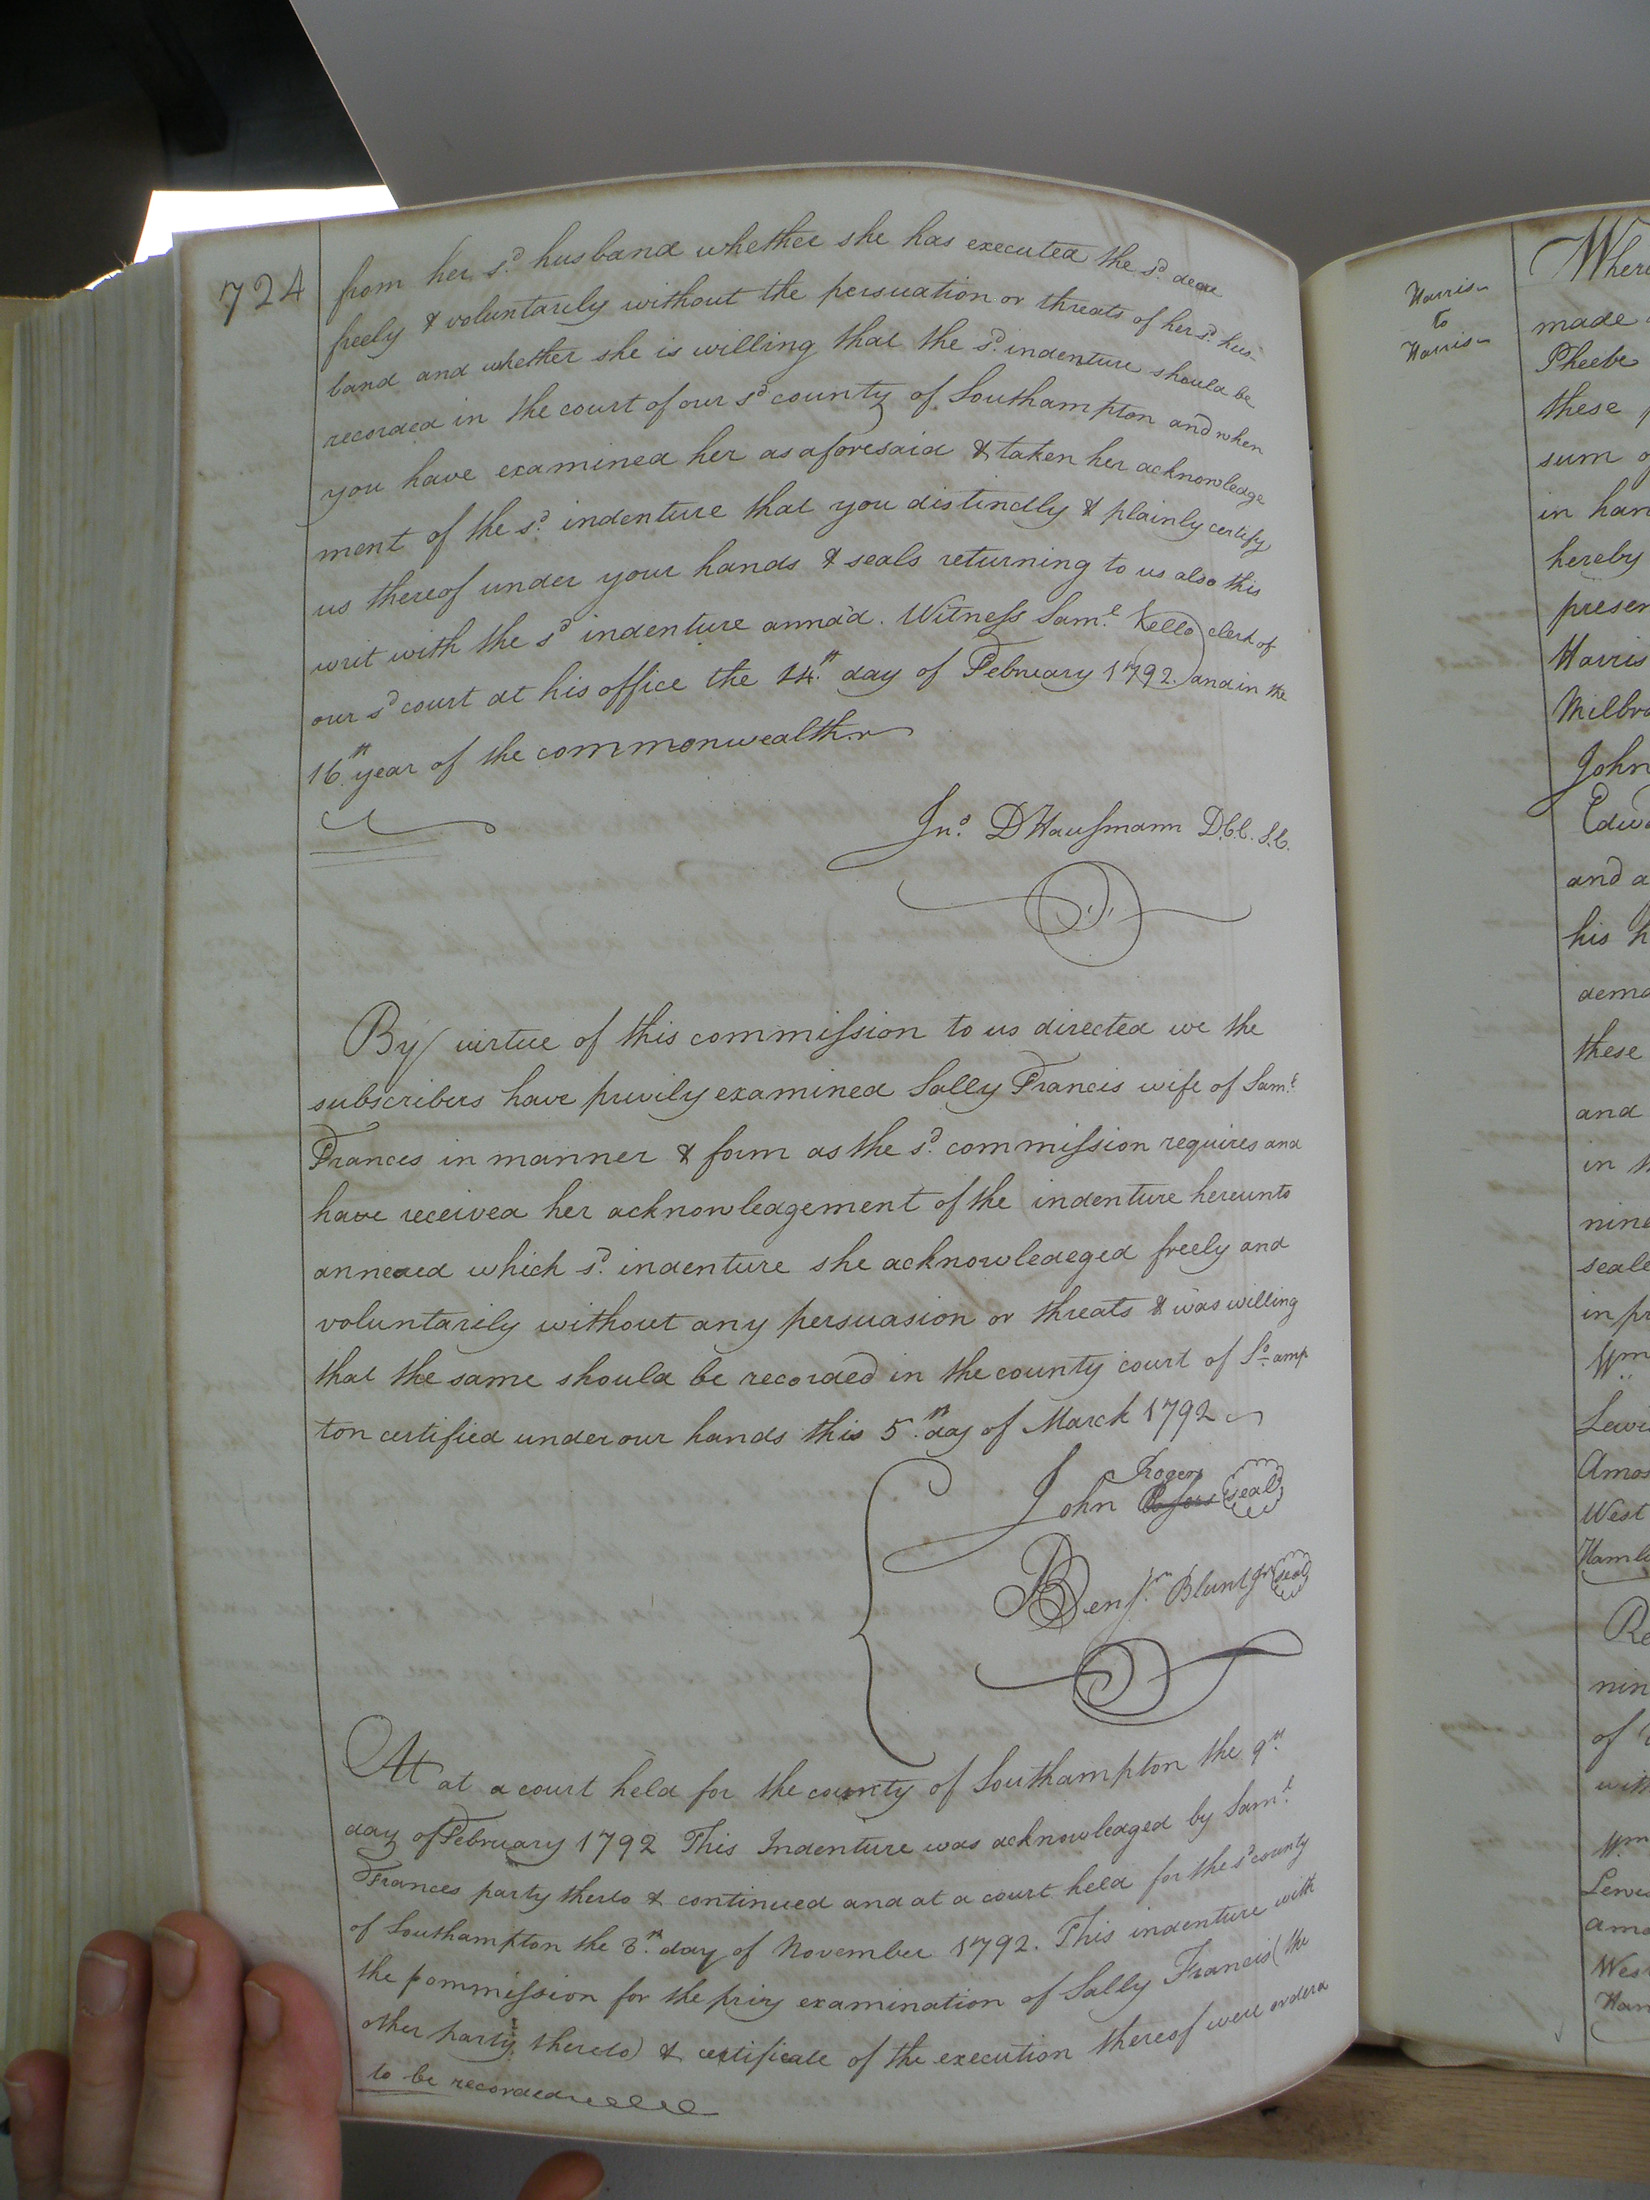 724
from her sd. husband whether she has executed the sd. deed
freely & voluntarily without the persuation or threats of her sd. hus-
band and whether she is willing that the sd. indenture should be
recorded in the court of our sd county of Southampton and when
you have examined her as aforesaid & taken her acknowledge
ment of the sd. indenture that you distinctly & plainly certify
us thereof under your hands & seals returning to us also this
writ with the sd indenture annx'd. Witness Saml. Kello clerk of
our sd court at his office the 14th. day of February 1792. and in the
16th. year of the commonwealth
Jno. D Haussmann D.C.C. S.C.
By virtue of this commission to us directed we the
subscribers have privily examined Sally Francis wife of Saml.
Frances in manner & form as the sd. commission requires and
have received her acknowledgement of the indenture hereunto
annexed which sd. indenture she acknowledeged freely and
voluntarily without any persuasion or threats & was willing
that the same should be recorded in the county court of So-amp
ton certified under our hands this 5th. day of March 1792
Rogers
John seal
Benjmn. Blunt Jr seal
At at a court held for the county of Southampton the 9th.
day of February 1792 This Indenture was acknowledged by Saml.
Frances party thereto & continued and at a court held for the sd county
of Southampton the 8th. day of November 1792. This indenture with
the commission for the privy examination of Sally Francis (the
other party thereto) & certificate of the execution thereof were orderd
to be recorded
Harris
to
Harris
Where
made
Pheebe
these
sum
in han
hereby
presen
Harris
Milbro
John
Edwd
and a
his h
dema
these
and
in
nine
seale
in pr
Wm
Lewis
Amos
West
Haml
Re
nin
of
with
Wm
Lewi
amo
Wes
Ham